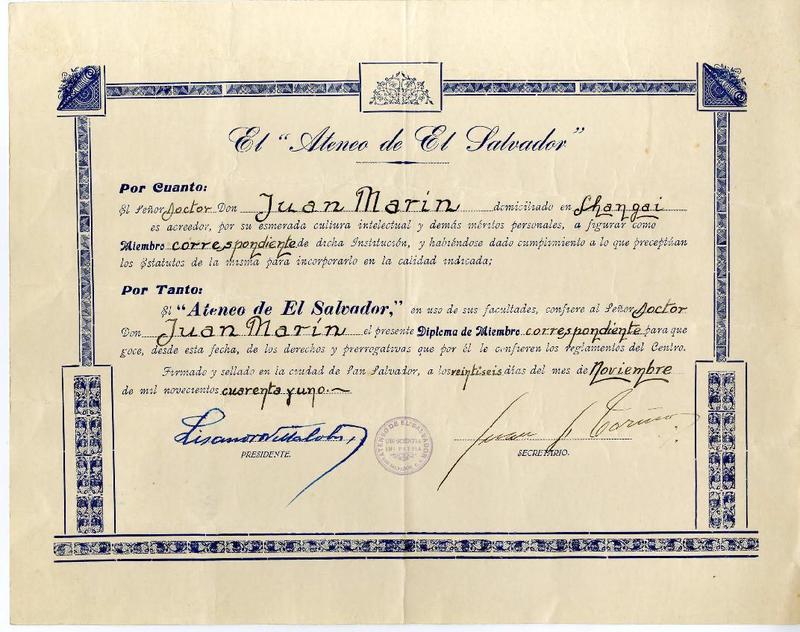 El "Ateneo de El Salvador"
Por Cuanto:
El Señor Doctor Don Juan Marín domiciliado en Shangai
es acreedor, por su esmerada cultura intelectual y demás méritos personales, a figurar como
Miembro correspondiente de dicha Institución, y habiéndose dado cumplimiento a lo que preceptúan
los Estatutos de la misma para incorporarlo en la calidad indicada;
Por Tanto:
El "Ateneo de El Salvador," en uso de sus facultades, confiere al Señor Doctor
Don Juan Marín el presente Diploma de Miembro correspondiente para que
goce, desde esta fecha, de los derechos y prerrogativas que por él le confieren los reglamentos del Centro.
Firmado y sellado en la ciudad de San Salvador, a los veintiseis días del mes de Noviembre
de mil novecientos cuarenta y uno.—
Lisandro Villalobos
Juan
PRESIDENTE.
SECRETARIO.
ATENEO DE EL SALVADOR